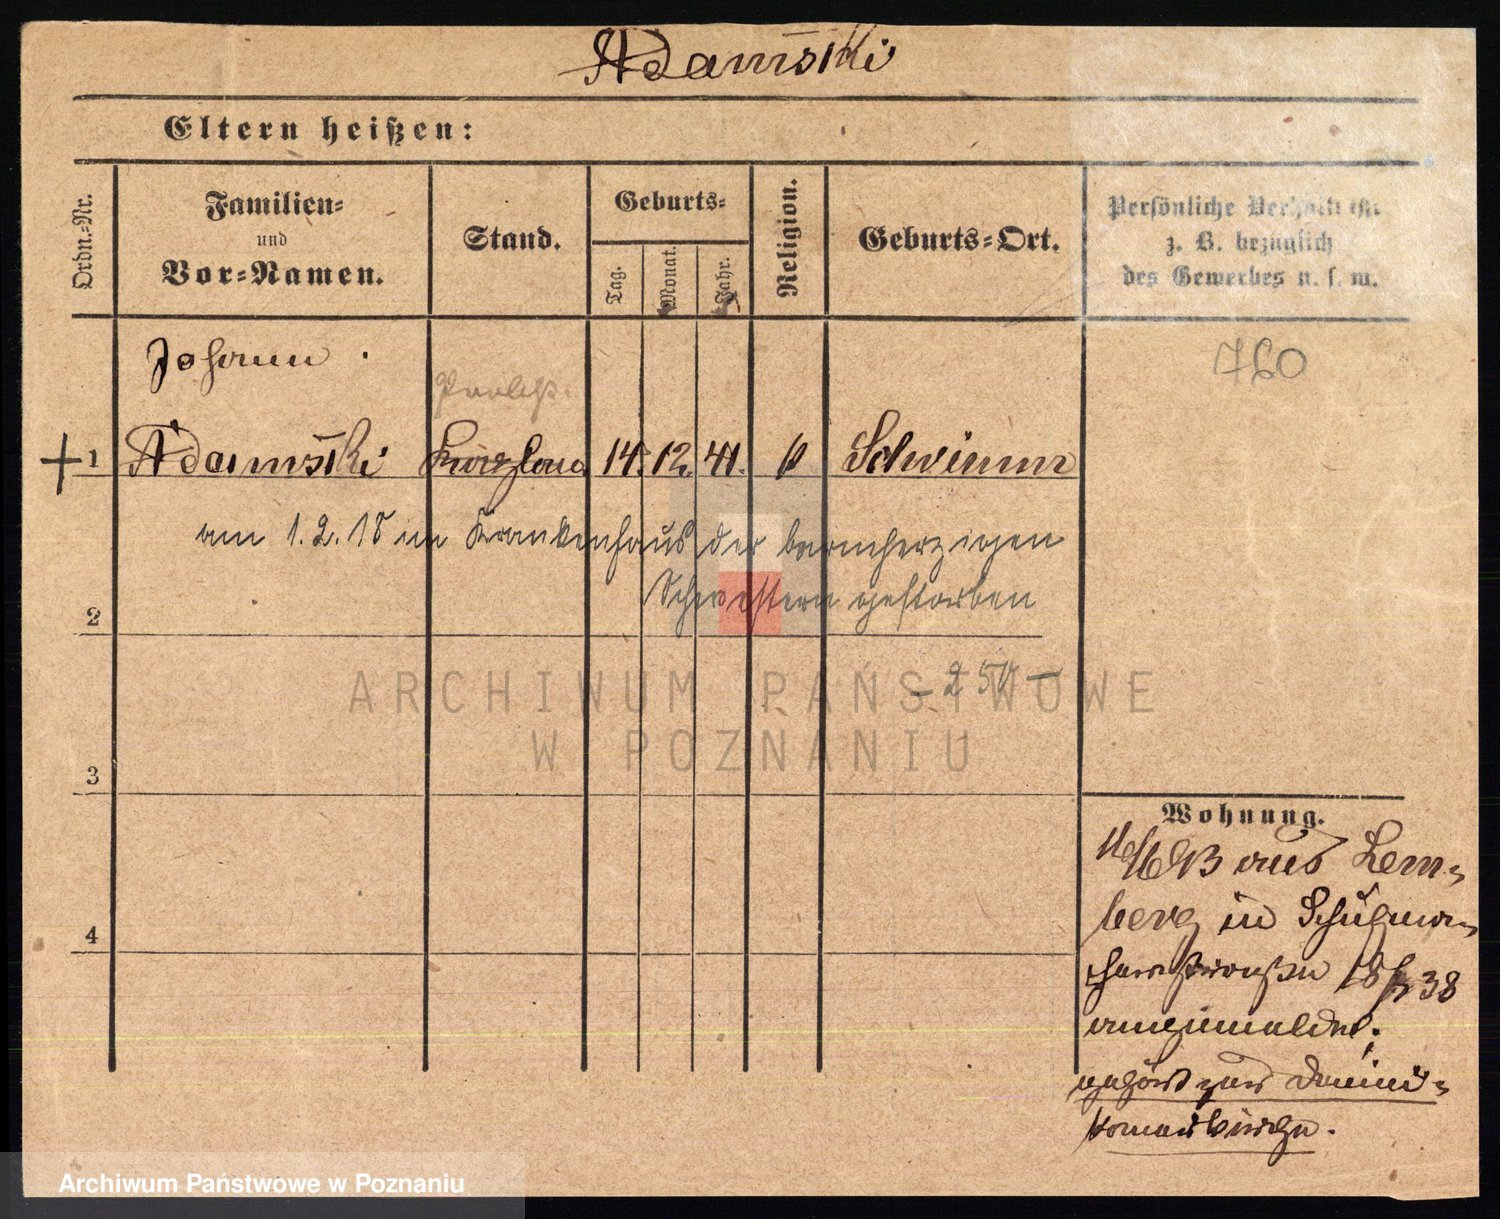 Adamski
Eltern heißen:
Ordn.-Nr.
Familien-
und
Vor-Namen.
Stand.
Geburts-
Tag.
Monat.
Jahr.
Religion.
Geburts-Ort.
Persönliche Verhältnisse
z. B. bezüglich
des Gewerbes u. s. w.
Johann
760
1 Adamski 14. 12. 41.
am 1.2.18 im Krankenhaus der barmherzigen
Schwestern gestorben
2
3
4
Wohnung.
aus Lem-
berg in Schuhma-
cherstraße
angemeldet,
gehört zur Domini-
kanerkirche.
ARCHIWUM PAŃSTWOWE
W POZNANIU
Archiwum Państwowe w Poznaniu